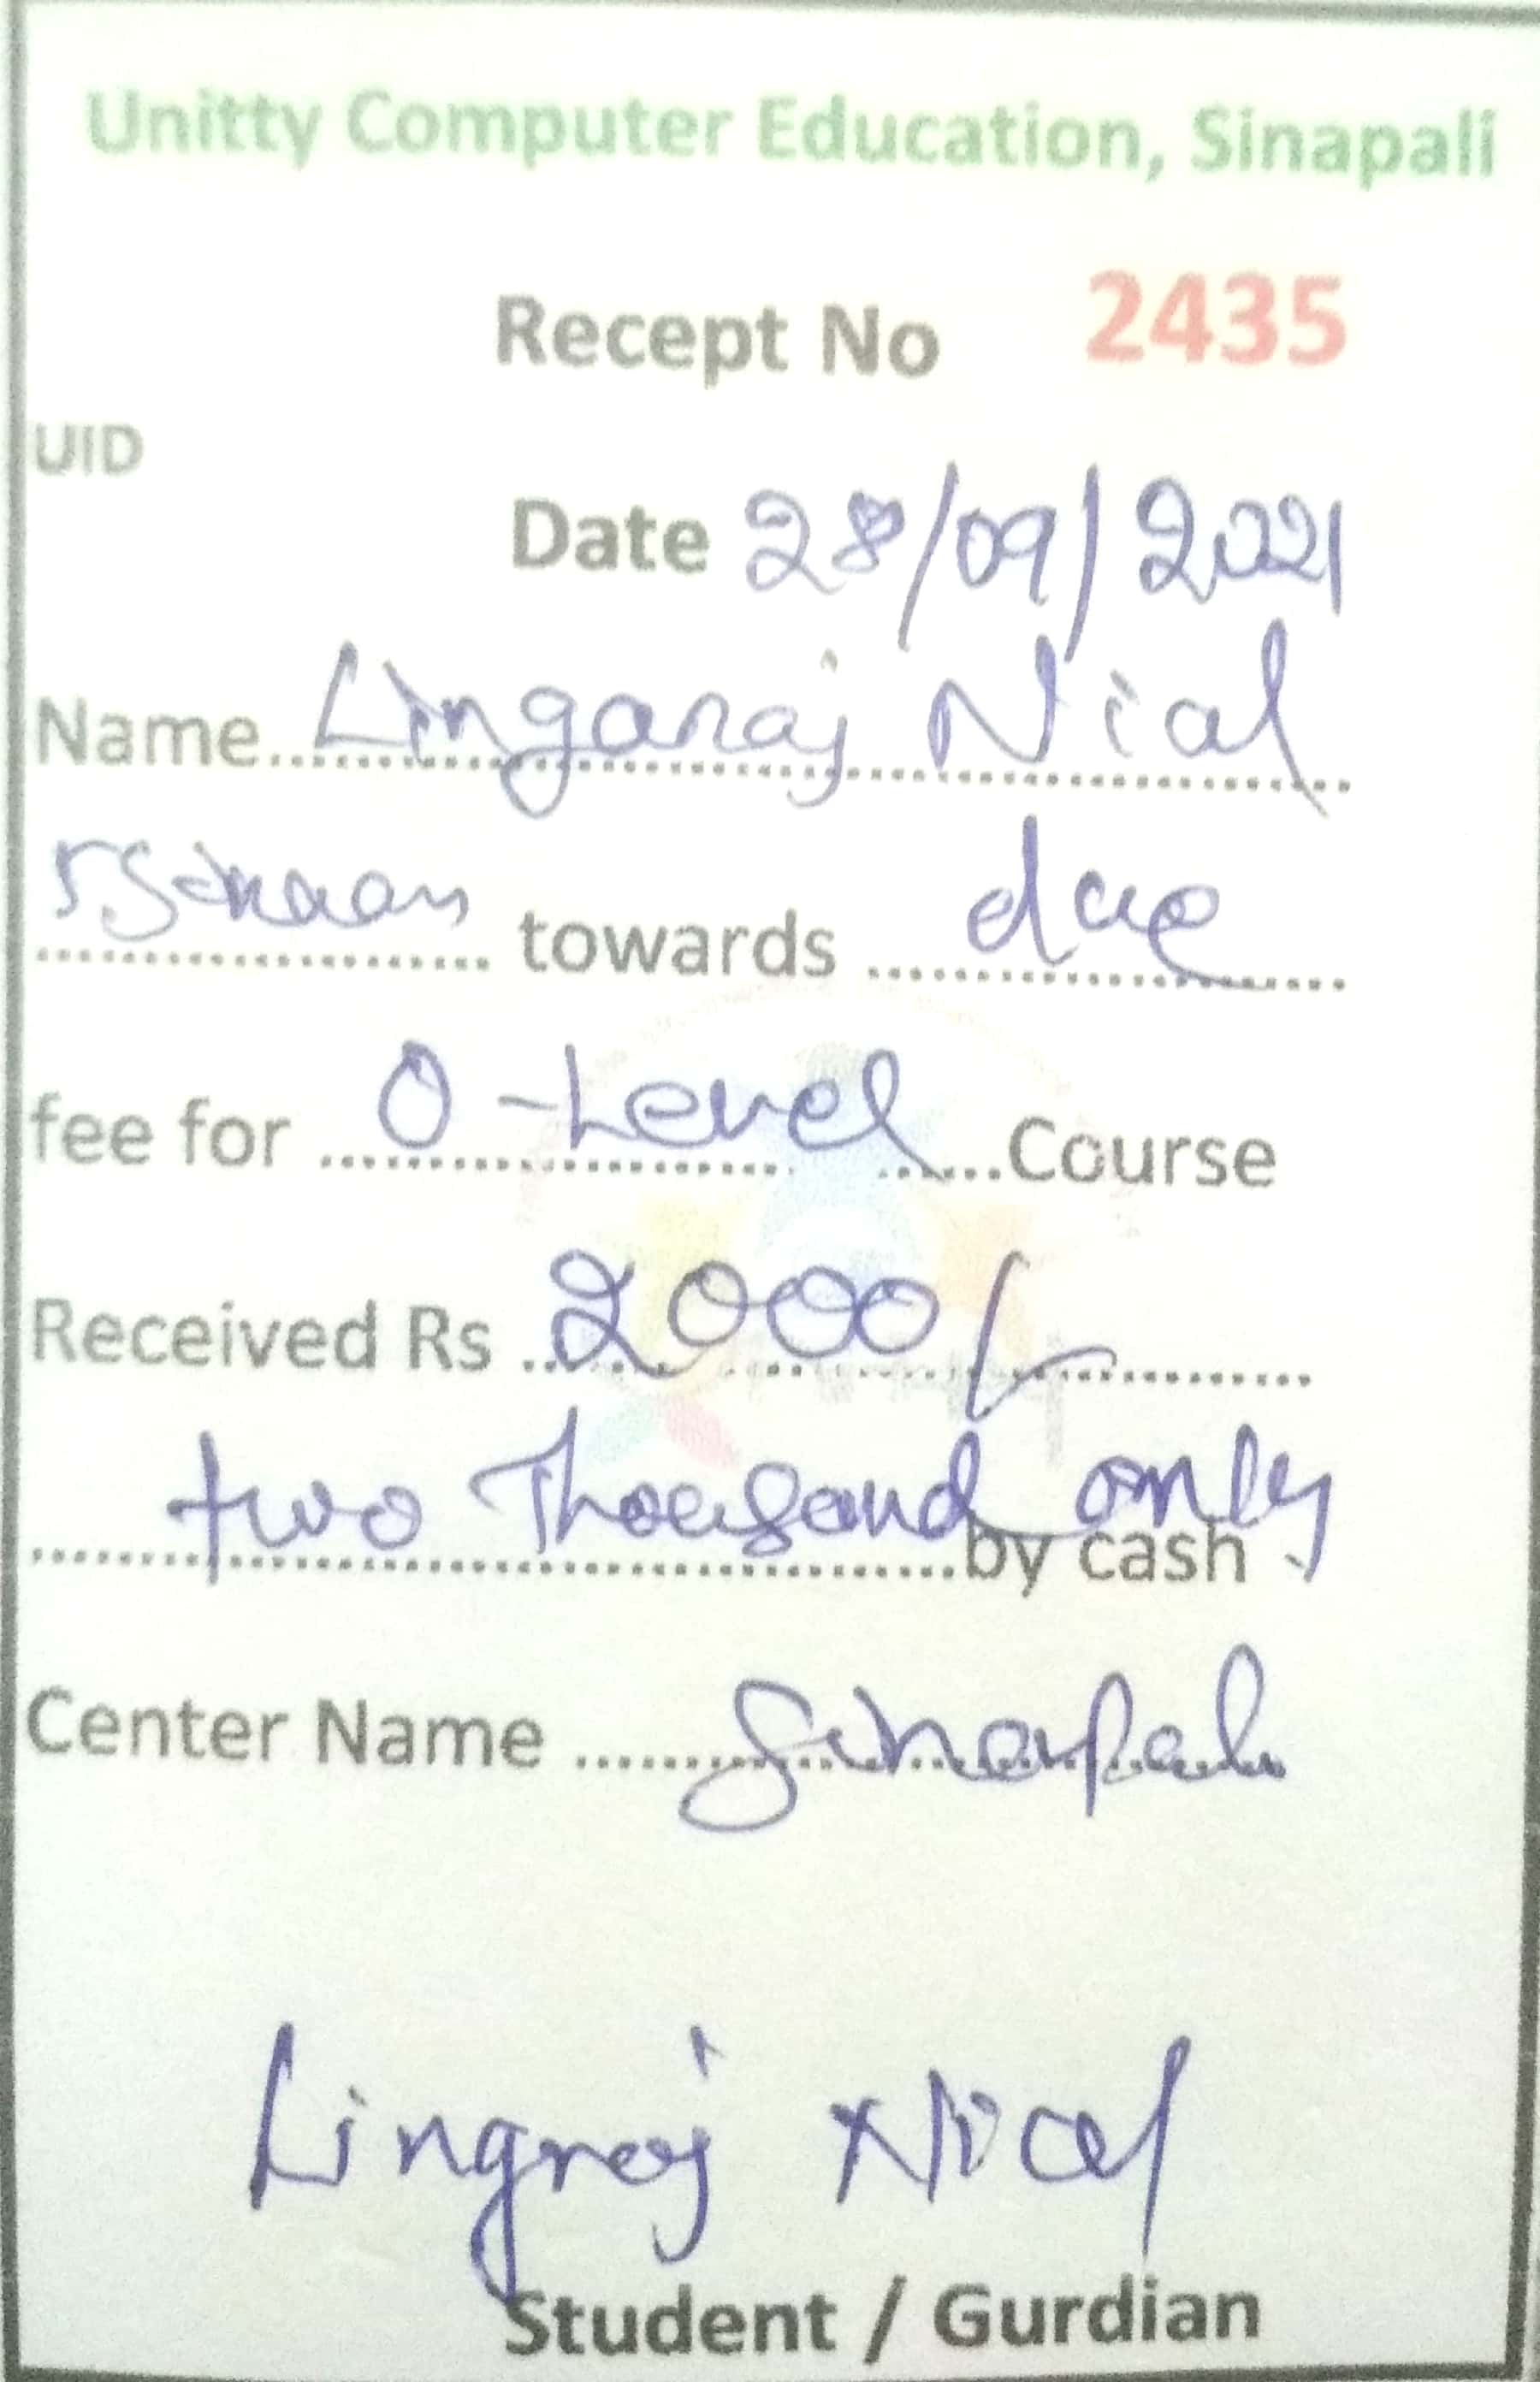 Unitty Computer Education, Sinapali
Recept No 2435
UID
Date 28/09/2021
Name Linganaj Nial
towards due
fee for O-Level Course
Received Rs 2000/-
two Thousand only
by cash
Center Name Sinapali
Lingraj Nial
Student / Gurdian